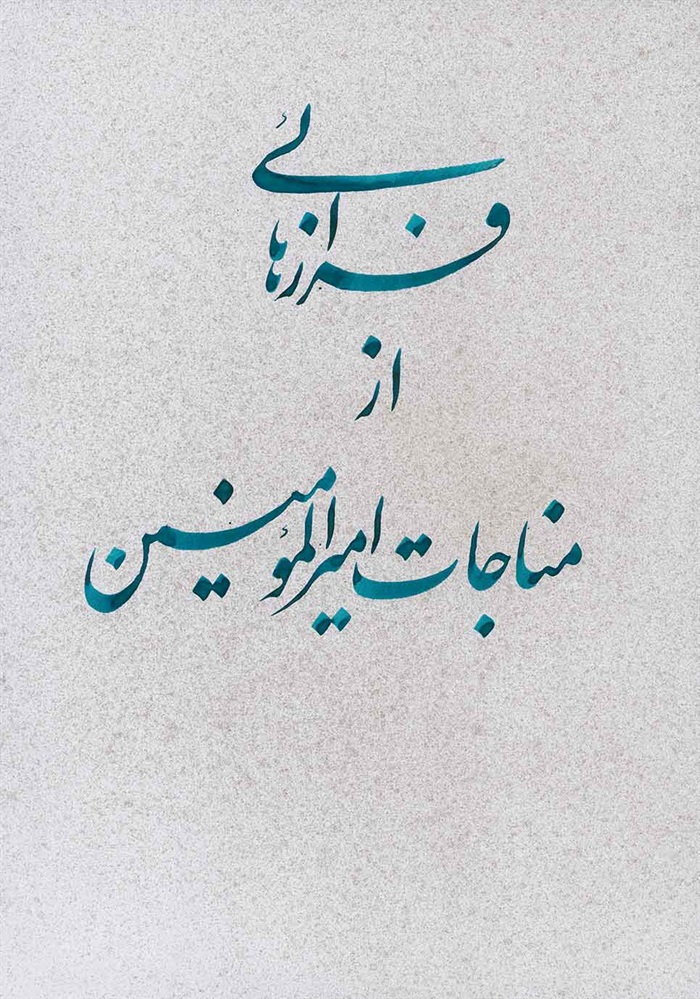 فرازهائی
از
مناجات امیرالمؤمنین